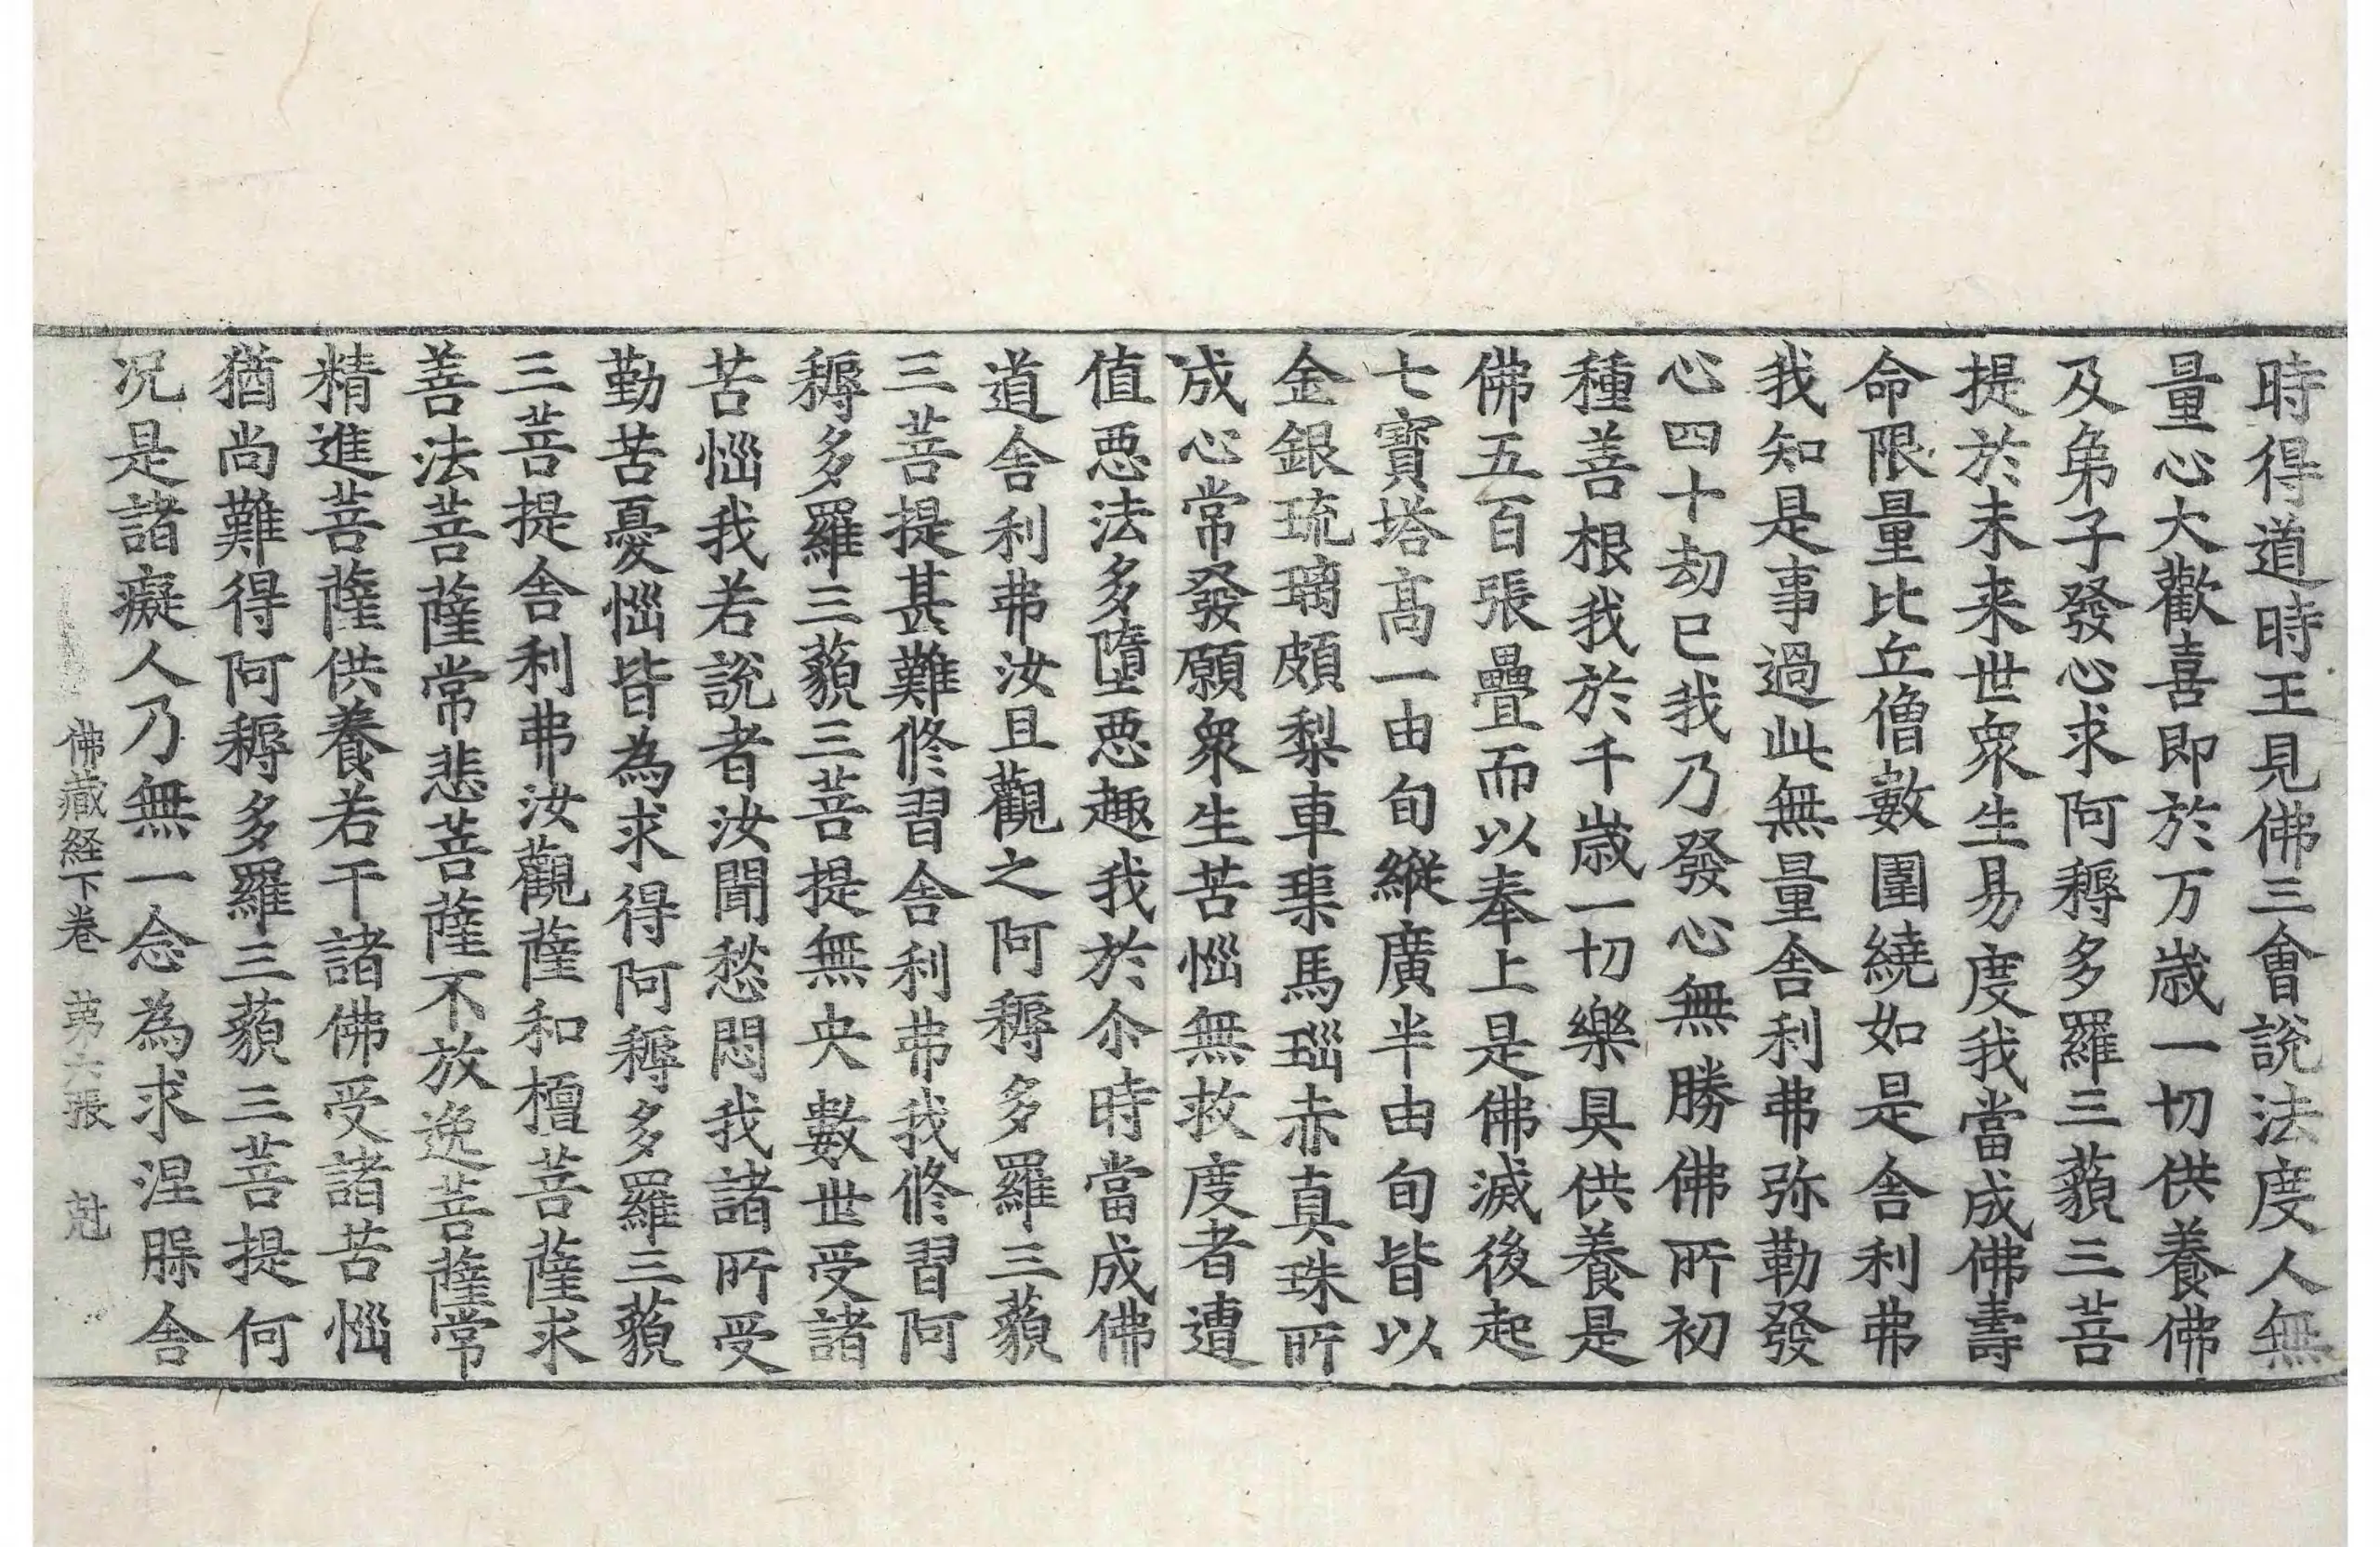 時得道時王見佛三會說法度人無
量心大歡喜即於万歲一切供養佛
及弟子發心求阿耨多羅三藐三菩
提於未来世衆生易度我當成佛壽
命限量比丘僧數圍繞如是舍利弗
我知是事過此無量舍利弗弥勒發
心四十劫已我乃發心無勝佛所初
種善根我於千歲一切樂具供養是
佛五百張疊而以奉上是佛滅後起
七寶塔高一由旬縱廣半由旬皆以
金銀琉璃頗梨車𤦲馬瑙赤真珠所
成心常發願衆生苦惱無救度者遭
值惡法多墮惡趣我於尒時當成佛
道舍利弗汝且觀之阿耨多羅三藐
三菩提甚難修習舍利弗我修習阿
耨多羅三藐三菩提無央數世受諸
苦惱我若說者汝聞愁悶我諸所受
勤苦憂惱皆為求得阿耨多羅三藐
三菩提舍利弗汝觀薩和檀菩薩求
善法菩薩常悲菩薩不放逸菩薩常
精進菩薩供養若干諸佛受諸苦惱
猶尚難得阿耨多羅三藐三菩提何
况是諸癡人乃無一念為求涅槃舍
佛藏経下卷 第六張 尅